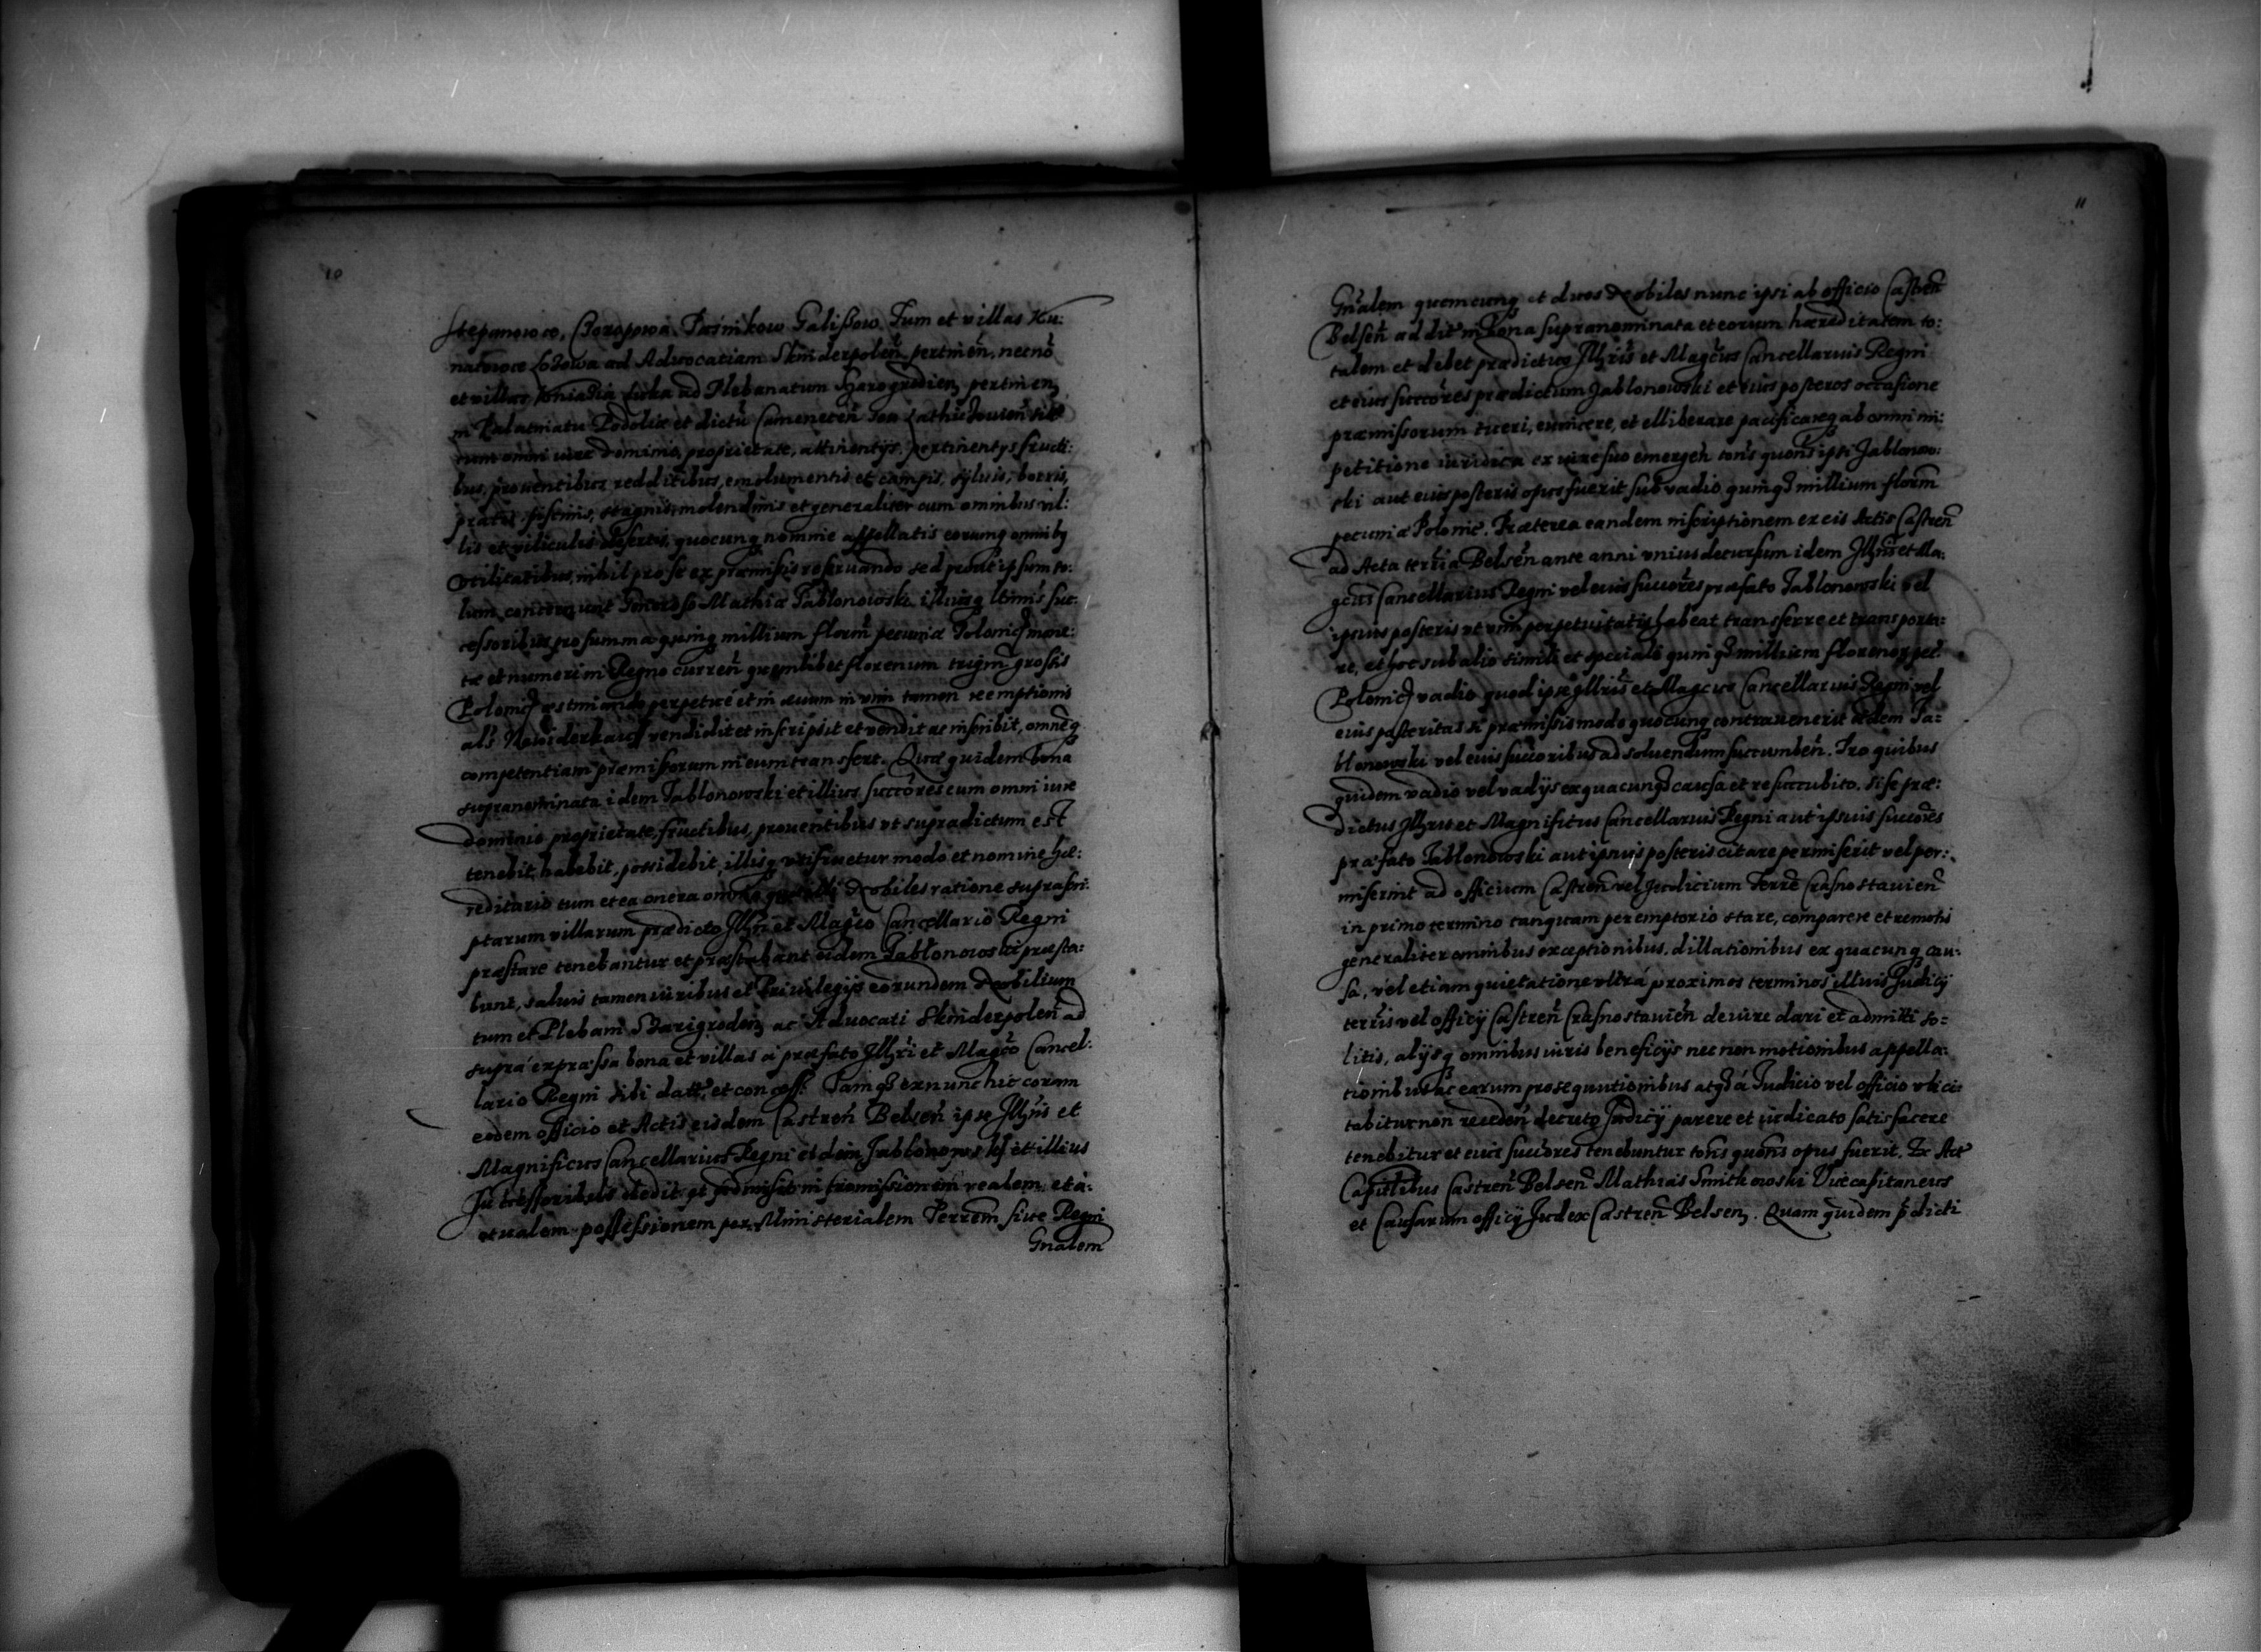 10
Stepanowco, Boropowa Paśnikow Galißow Tum et villas Ku:
natowce Lozowa ad Aduocatiam Skinderpoleñ pertineñ, necnõ
et villas ad Plebanatum Szarogrodien pertinen
in Palatinatu Podoliæ et dictũ Cameneceñ
cum omni iure Dominio, proprietate, attinentijs, pertinentijs fructi:
bus, prouentibus redditibus, emolumentis et campis, syluis, borris,
pratis, piscinis, stagnis, molendinis et generaliter cum omnibus vil:
lis et viliculis desertis, quocunq nomine appellatis eorumq omnibq
vtilitatibus, nihil pro se ex præmissis reseruando sed prout ipsum to:
tum concernunt Generoso Mathiæ Jablonowski illiusq ltimis suc:
cessoribus pro summa quinq millium florm̃ pecuniæ Polonicę mone:
tæ et numeri in Regno curreñ quemlibet florenum trigin̄ grossis
Polonicę æstimando perpetuè et in æuum in vim tamen reemptionis
als vendidit et inscripsit et vendit ac inscribit, omneq
competentiam præmissorum in eum transfert. Quæ quidem bona
supranominata idem Jablonowski et illius succõres cum omni iure
dominio proprietate, fructibus, prouentibus vt supradictum est
tenebit, habebit, possidebit, illisq vtifruetur modo et nomine hæ:
reditario tum et ea onera omnia quæ illi Nobiles ratione suprascri:
ptarum villarum prædicto Jllr̃i et Magco Cancellario Regni
præstare tenebantur et præstabant eidem Jablonowski præsta:
bunt, saluis tamen iuribus et Priuilegijs eorundem Nobilium
tum et Plebani Szarigroden ac Aduocati Skinderpoleñ ad
suprá expræssa bona et villas á præfato Jllr̃i et Magco Cancel:
lario Regni sibi dat, et concess: Iamq ex nunc hic coram
eodem officio et Actis eisdem Castreñ Belseñ ipse Jllr̃is et
Magnificus Cancellarius Regni eidem Jablonowski et illius
successoribus dedit et admisit in tromissionem realem et a:
ctualem possessionem per Ministerialem Terrem̃ siue Regni
Gnalem
11
Gn̄alem quemcunq et duos Nobiles nunc ipsi ab officio Castreñ
Belseñ addit in Bona supranominata et eorum hæreditatem to:
talem et debet prædictus Jllr̃is et Magcus Cancellarius Regni
et eius succõres prædictum Jablonowski et eius posteros occasione
præmissorum tueri, euincere, et elliberare pacificareq ab omni im:
petitione iuridica ex iure suo emergeñ totis quotis ipsi Jablonow:
ski aut eius posteris opus fuerit sub vadio quinq millium florm̃
pecuniæ Polonic. Præterea eandem inscriptionem ex eis Actis Castreñ
ad Acta terr̃ia Belseñ ante anni vnius decursum idem Jllr̃is et Ma:
gcus Cancellarius Regni vel eius succõres præfato Jablonowski vel
ipsius posteris vt vim perpetuitatis habeat transferre et transporta:
re, et hoc sub alio simili et speciali quinq millium florenor pec:
Polonicę vadio quod ipse Jllris et Magcus Cancellarius Regni vel
eius posteritas si præmissis modo quocunq contrauenerit eidem Ja:
blonowski vel eius succoribus ad soluendum succumbeñ. Pro quibus
quidem vadio vel vadijs ex quacunq causa et re succubito. si se præ:
dictus Jllr̃is et Magnificus Cancellarius Regni aut ipsius succõres
præfato Jablonowski aut ipsius posteris citare permiserit vel per:
miserint ad officium Castreñ vel Judicium Terr̃e Crasnostauieñ
in primo termino tanquam peremptorio stare, comparere et remotis
generaliter omnibus exceptionibus, dillationibus ex quacunq cau:
sa, vel etiam quietatione vltrá proximos terminos illius Judicij
terr̃is vel officij Castreñ Crasnostauieñ de iure dari et admitti so:
litis, alijsq omnibus iuris beneficijs nec non motionibus appella:
tionibus ac earum prosequutionibus atq á Iudicio vel officio vbi ci:
tabitur non recedeñ decreto Judicij parere et iudicato satisfacere
tenebitur et eius succõres tenebuntur totis quotis opus fuerit. Ex Act
Capitlibus Castreñ Belseñ Mathias Smitkowski Vicecapitaneus
et Causarum officij Judex Castreñ Belsen. Quam quidem p̃dicti